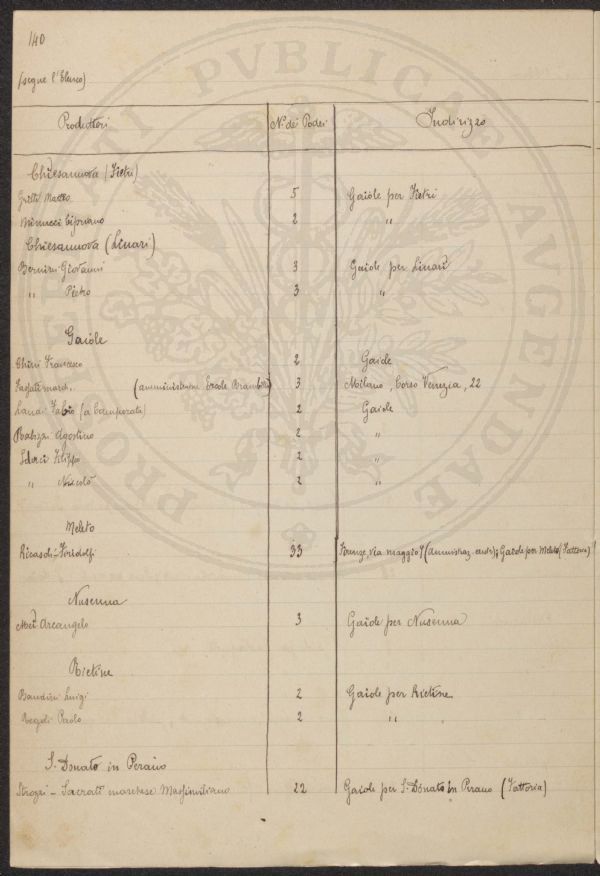 140
(segue l'Elenco)
Produttori N. dei Poderi Indirizzo
Chiesanuova (Fietri)
Gritti Matteo 5 Gaiole per Fietri
Minucci Cipriano 2 "
Chiesanuova (Linari)
Bernini Giovanni 3 Gaiole per Linari
" Pietro 3 "
Gaiole
Chini Francesco 2 Gaiole
march. (amministrazione Ercole Brambilla) 3 Milano, Corso Venezia, 22
Fabio (a Camporata) 2 Gaiole
Agostino 2 "
Filippo 2 "
" Niccolò 2 "
Meleto
Ricasoli-Firidolfi 33 Firenze, via Maggio 7 (amministraz. centr.); Gaiole per Meleto (Fattoria)
Nusenna
Mei Arcangelo 3 Gaiole per Nusenna
Rietine
Bandini Luigi 2 Gaiole per Rietine
Regoli Paolo 2 "
S. Donato in Perano
Strozzi-Sacrati marchese Massimiliano 22 Gaiole per S. Donato in Perano (Fattoria)
PROSPERITATI PVBLICAE AVGENDAE